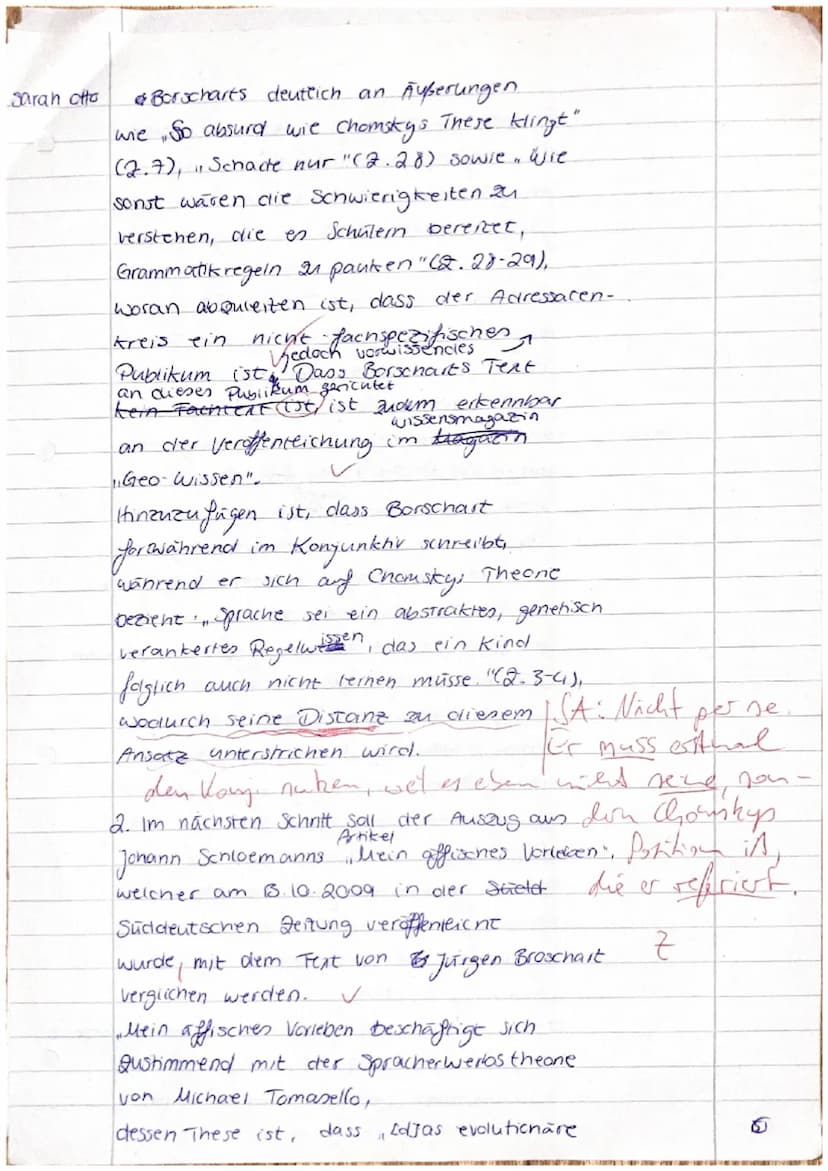 Sarah Otto
Borscharts deutlich an Äußerungen
wie „So absurd wie Chomskys These klingt"
(Z.7), „Schade nur"(Z.28) sowie „Wie
sonst wären die Schwierigkeiten zu
verstehen, die es Schülern bereitet,
Grammatikregeln zu pauken"(Z.28-29),
woran abzuleiten ist, dass der Adressaten-
kreis ein nicht-fachspezifisches
jedoch vorwissendes
Publikum ist. Dass Borscharts Text
an dieses Publikum gerichtet
kein Fachtext ist, ist zudem erkennbar
wissensmagazin
an der Veröffentlichung im Magazin
„Geo-Wissen".
Hinzuzufügen ist, dass Borschart
forwährend im Konjunktiv schreibt,
während er sich auf Chomskys Theorie
bezieht: „Sprache sei ein abstraktes, genetisch
verankertes Regelwissen, das ein Kind
folglich auch nicht lernen müsse."(Z.3-4),
wodurch seine Distanz zu diesem
SA: Nicht per se.
Ansatz unterstrichen wird.
Er muss erstmal
den Konj. nutzen, weil es eben nicht seine, son-
2. Im nächsten Schritt soll der Auszug aus
dern Chomskys
Artikel
Johann Schloemanns „Mein äffisches Vorleben",
Position ist,
welcher am 13.10.2009 in der
die er referiert.
Süddeutschen Zeitung veröffentlicht
wurde, mit dem Text von Jürgen Broschart
Z
verglichen werden.
„Mein äffisches Vorleben beschäftigt sich
zustimmend mit der Spracherwerbstheorie
von Michael Tomasello,
dessen These ist, dass „[d]as evolutionäre